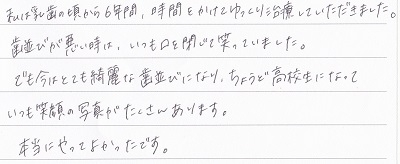 私は乳歯の頃から6年間、時間をかけてゆっくり治療していただきました。
歯並びが悪い時は、いつも口を閉じて笑っていました。
でも今はとても綺麗な歯並びになり、ちょうど高校生になって
いつも笑顔の写真がたくさんあります。
本当にやってよかったです。